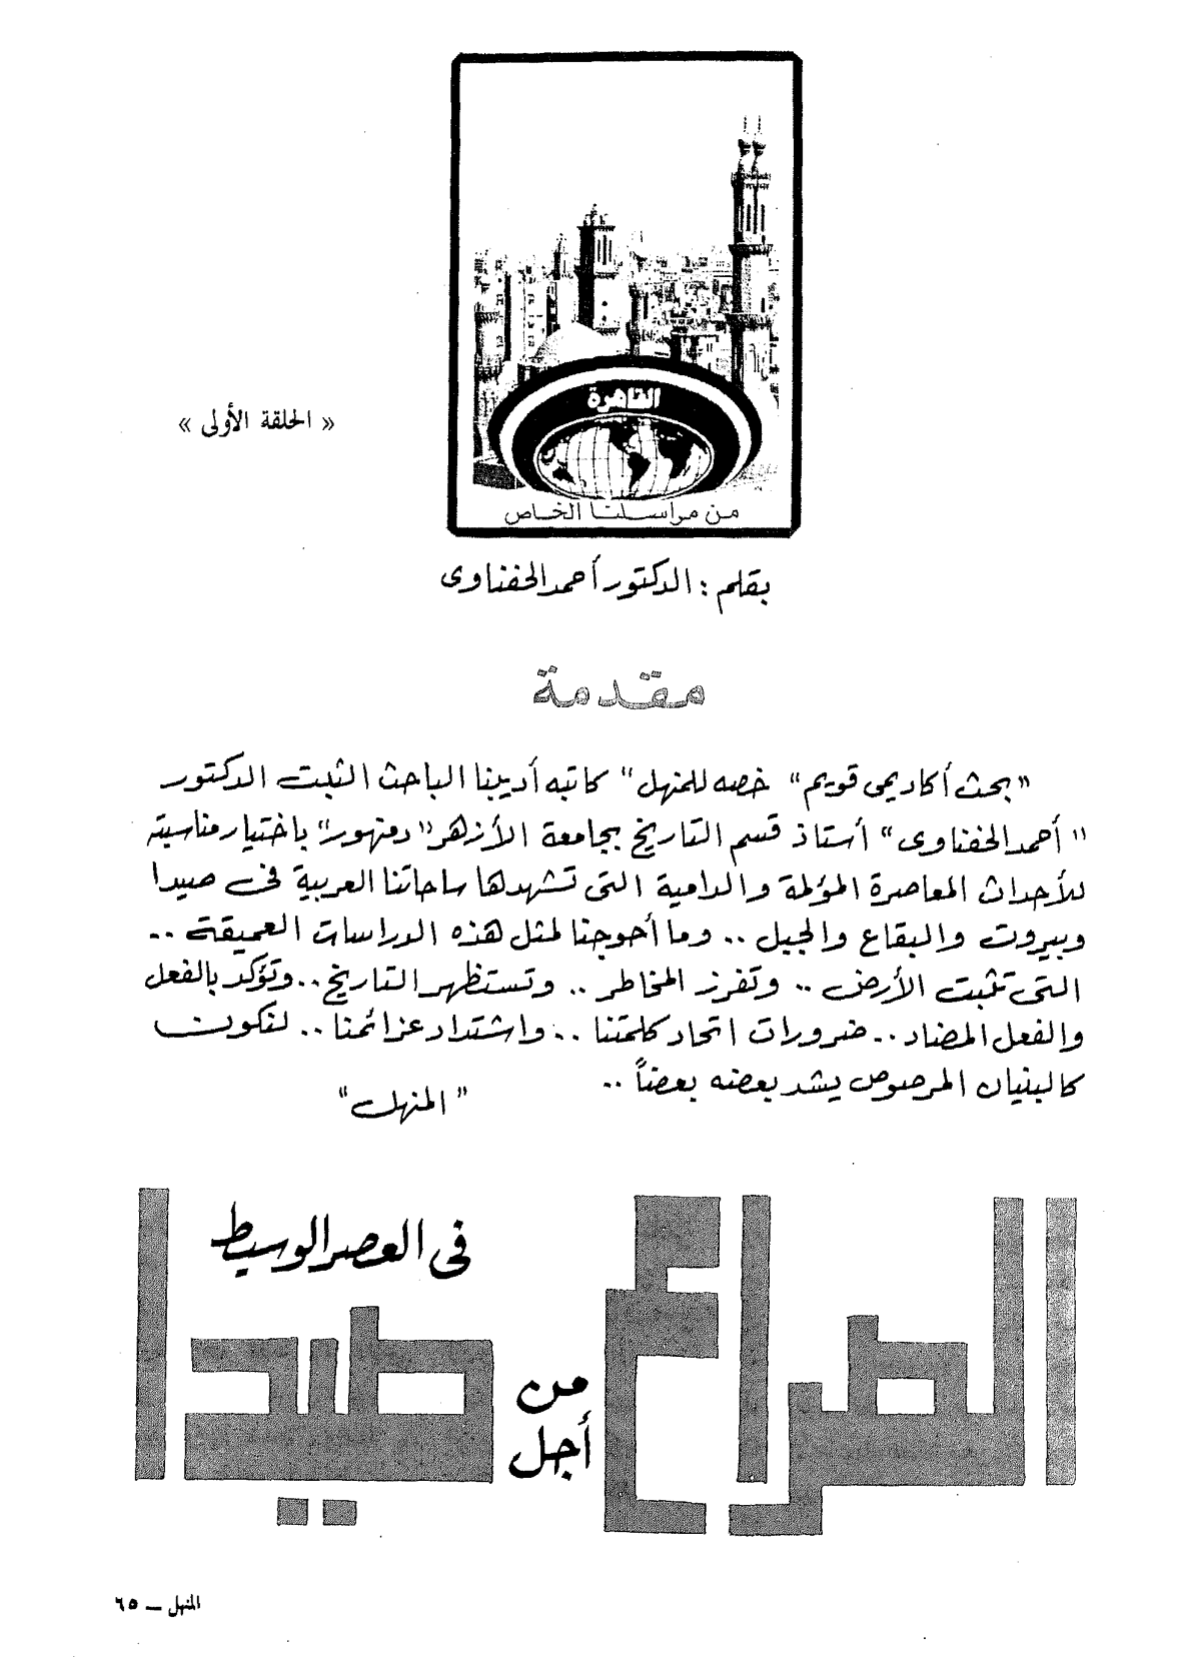 القاهرة
من مراسلنا الخاص
« الحلقة الأولى »
بقلم : الدكتور أحمد الحفناوى
مقدمة
"بحث أكاديمى قويم" خصه للمنهل" كاتبه أديبنا الباحث الثبت الدكتور
"أحمد الحفناوى" أستاذ قسم التاريخ بجامعة الأزهر "دمنهور" باختيار مناسبته
للأحداث المعاصرة المؤلمة والدامية التى تشهدها ساحاتنا العربية فى صيدا
وبيروت والبقاع والجبل .. وما أحوجنا لمثل هذه الدراسات العميقة ..
التى تثبت الأرض .. وتفرز المخاطر .. وتستظهر التاريخ .. وتؤكد بالفعل
والفعل المضاد .. ضرورات اتحاد كلمتنا .. واشتداد عزائمنا .. لنكون
كالبنيان المرصوص يشد بعضه بعضاً ..
"المنهل"
الصراع
من
أجل
صيدا
فى العصر الوسيط
المنهل — ٦٥